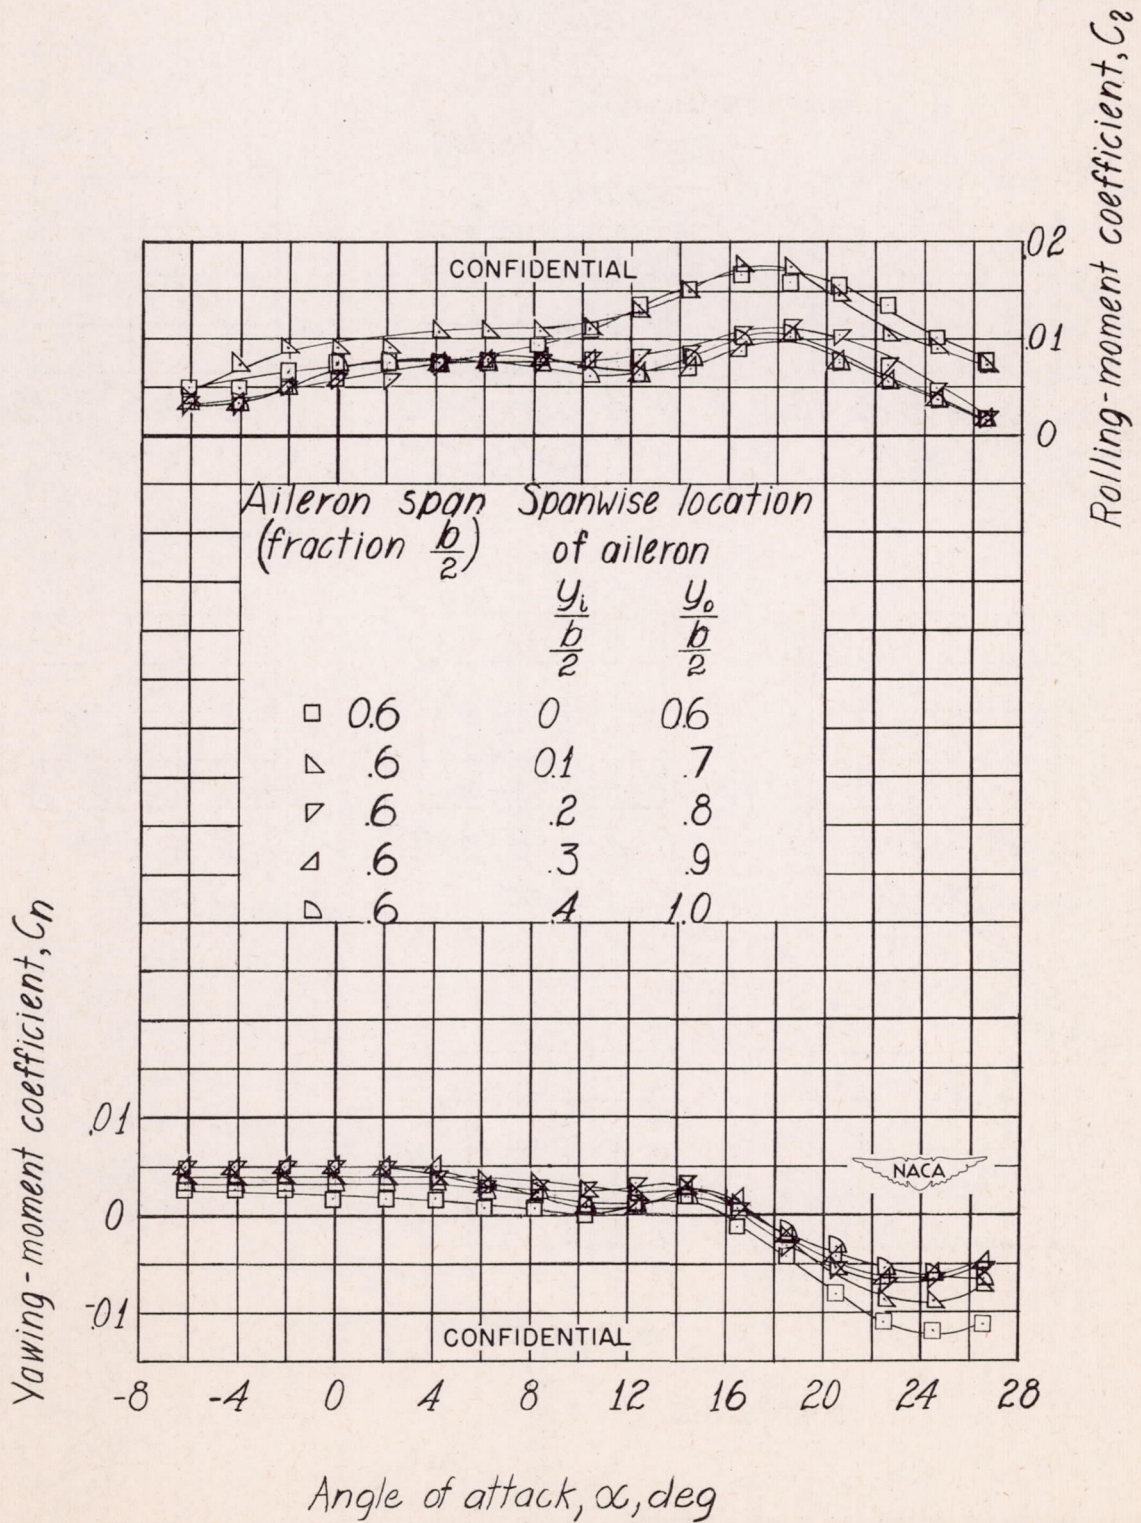 Rolling-moment coefficient, Cl
CONFIDENTIAL
.02
.01
0
Aileron span Spanwise location
(fraction b/2) of aileron
yi/b/2 yo/b/2
0.6 0 0.6
.6 0.1 .7
.6 .2 .8
.6 .3 .9
.6 .4 1.0
Yawing-moment coefficient, Cn
.01
0
-.01
NACA
CONFIDENTIAL
-8 -4 0 4 8 12 16 20 24 28
Angle of attack, α, deg